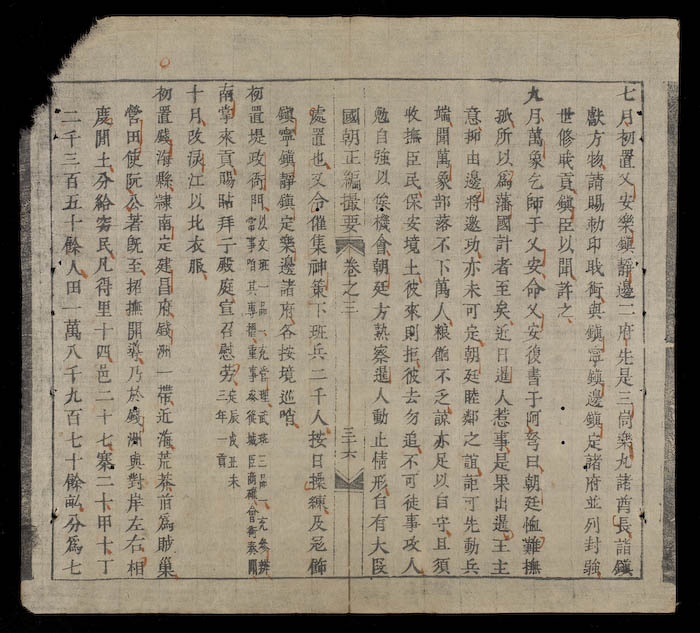 七月初置乂安樂鎮靜邊二府先是三峝樂凢諸酋長詣鎮
獻方物請賜勅印職銜與鎮寧鎮邊鎮定諸府並列封強
世修職貢鎮臣以聞許之
九月萬象乞師于乂安命乂安復書于阿弩曰朝廷恤難撫
孤所以爲藩國計者至矣近日暹人惹事是果出暹王主
意抑由邊將邀功亦未可定朝廷睦鄰之誼詎可先動兵
端聞萬象部落不下萬人粮餉不乏諒亦足以自守且須
收撫臣民保安境土彼來則拒彼去勿追不可徒事攻人
勉自強以俟機會朝廷方熟察暹人動止情形自有大段
國朝正編撮要 卷之三 三十六
處置也又合催集神策下班兵二千人按日操練及冠飾
鎮寧鎮靜鎮定樂邊諸府各按境巡哨
初置堤政衙門以文班一品一充管理武班三品一充參辨
常事咱其專摺重事奉從城臣商確會銜奏聞
南掌來貢賜貼拜于殿庭宣召慰勞定辰戌丑未
三年一貢
十月改淚江以北衣服
初置錢海縣隷南定建昌府錢洲一帶近海荒茶前爲賊巢
營田使阮公著旣至招撫開導乃於錢洲與對岸左右相
度閒土分給窮民凡得里十四邑二十七寨二十甲十丁
二千三百五十餘人田一萬八千九百七十餘畝分爲七